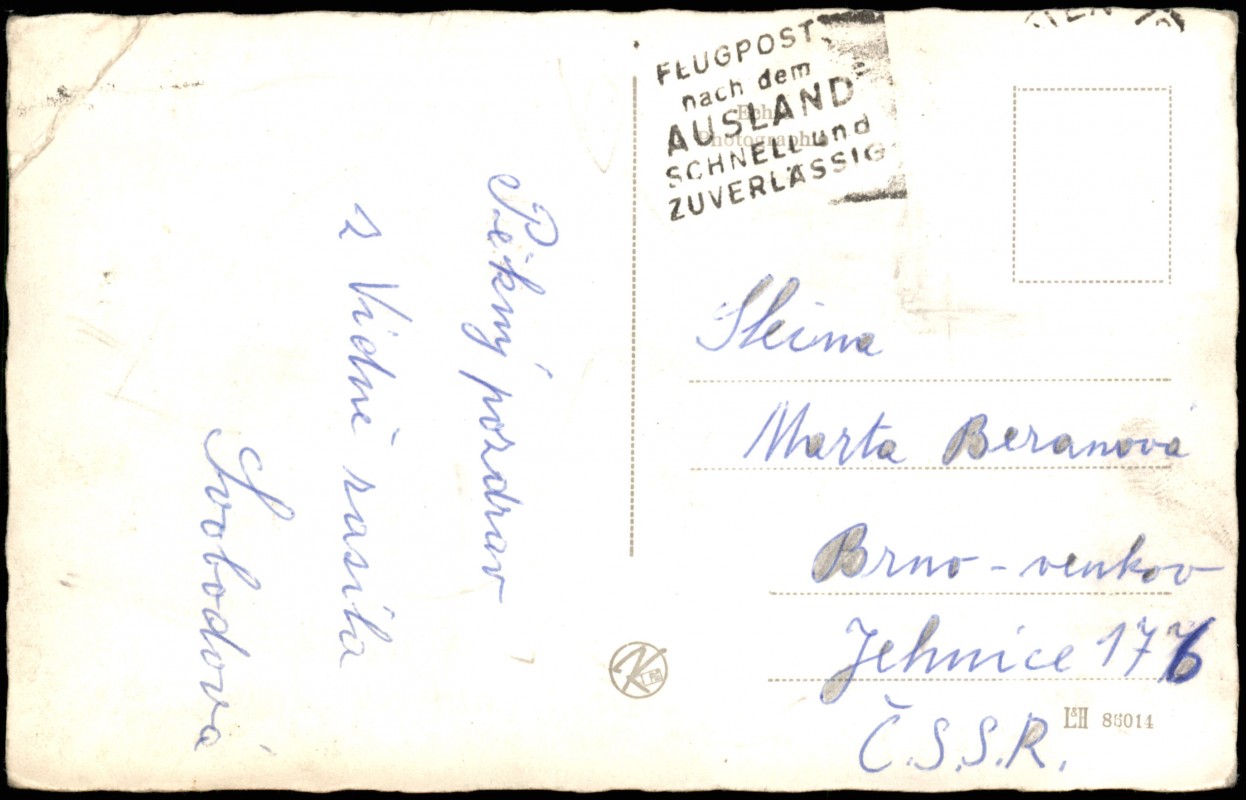 Pěkný pozdrav
z Vídně zasíla
Svobodová
FLUGPOST
nach dem
AUSLAND
SCHNELL und
ZUVERLÄSSIG
Echte
Photographie
Marta Beranová
Brno - venkov
Jehnice 176
Č.S.S.R.
L&H 86014
K